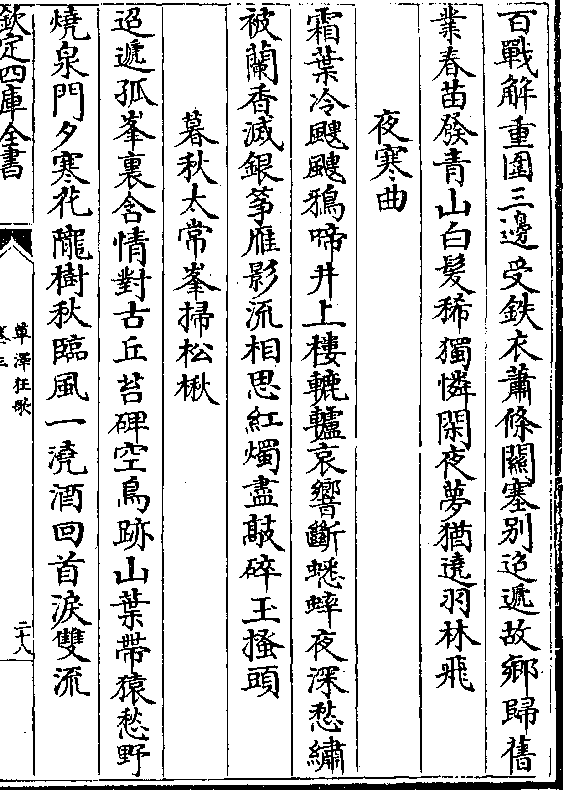 百戰解重圍三邊受鉄衣蕭條關塞别迢遞故鄉歸舊
業春苗發青山白髮稀獨憐閑夜夢猶遶羽林飛
夜寒曲
霜葉冷颼颼鴉啼井上樓轆轤哀響斷蟋蟀夜深愁繡
被蘭香滅銀筝雁影流相思紅燭盡敲碎玉搔頭
暮秋太常峯掃松楸
迢遞孤峯裏含情對古丘苔碑空鳥跡山葉帶猿愁野
燒泉門夕寒花隴樹秋臨風一澆酒回首淚雙流
欽定四庫全書
草澤狂歌
卷三
二十八